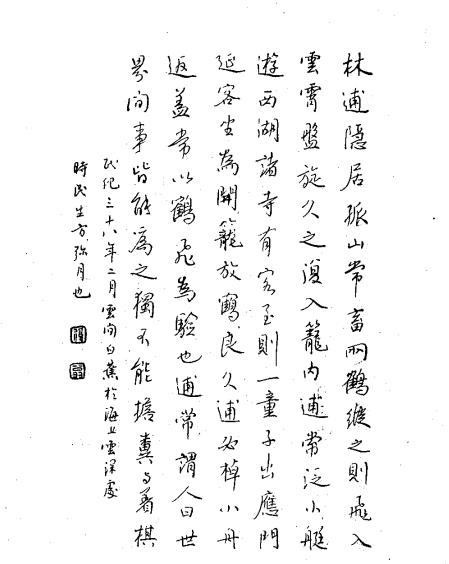 林逋隱居孤山常畜兩鶴縱之則飛入
雲霄盤旋久之復入籠內逋常泛小艇
遊西湖諸寺有客至則一童子出應門
延客坐為開籠放鶴良久逋必棹小舟
返蓋常以鶴飛為驗也逋常謂人曰世
界間事皆能為之獨不能擔糞与著棋
民紀三十八年二月雲間白蕉於海上雲深處
時民生方弥月也